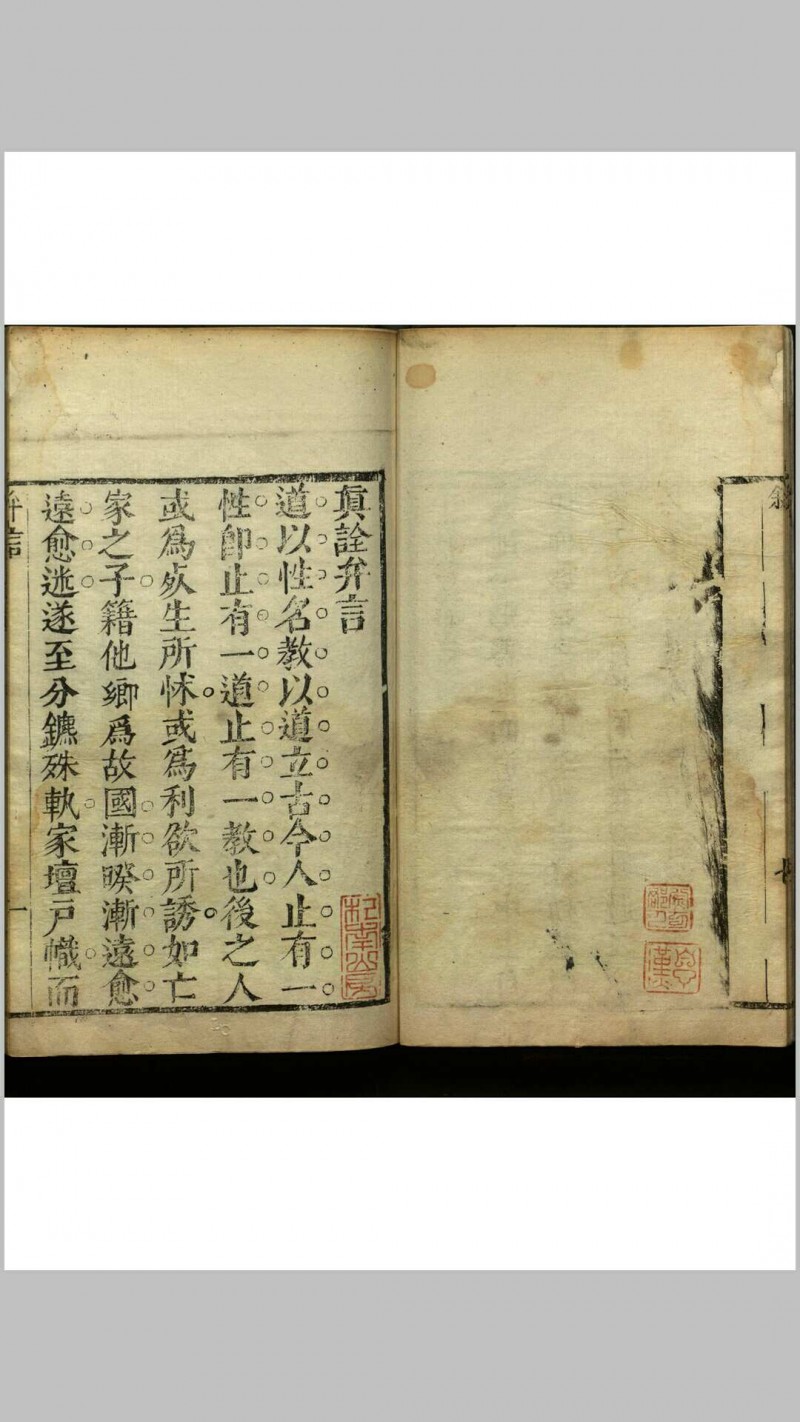 眞詮弁言
道以性名教以道立古今人止有一
性卽止有一道止有一教也後之人
或爲死生所怵或爲利欲所誘如亡
家之子籍他鄉爲故國漸暌漸遠愈
遠愈迷遂至分鑣殊軌家壇戶幟而
弁言
一